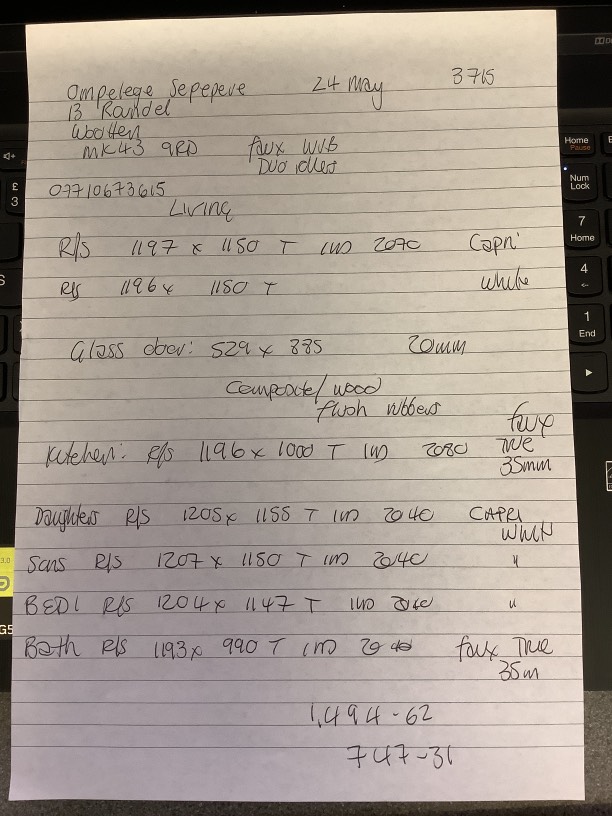 Ompelege Sepepeve 24 May 3715
13 Randel
Wootten
MK43 9RD faux WVB
Duo idlers
07710673615
Living
R/s 1197 x 1150 T IWD 2070 Capri
R/s 1196 x 1150 T White
Glass door: 529 x 885 20mm
Composite/wood
flush rubbers
faux
Kitchen: R/s 1196 x 1000 T IWD 2080 True
35mm
Daughters R/s 1205 x 1155 T IWD 2040 CAPRI
Sons R/s 1207 x 1150 T IWD 2040 "
BED1 R/s 1204 x 1147 T IWD 2040 "
Bath R/s 1193 x 990 T IWD 2040 faux True
35m
1,494-62
747-31
£
3
Home
Pause
Num
Lock
7
Home
4
1
End